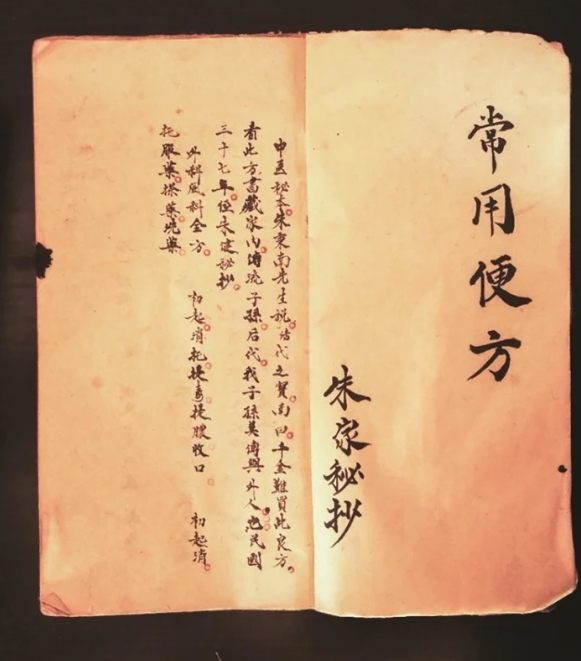 常用便方
朱家秘抄
中医秘本朱東南先生说話代之寶南曰千金難買此良方
看此方書藏家内傳流子孫后代我子孫莫傳與外人也民國
三十七年位朱建秘抄
外科風科全方 初起消托拔毒提膿收口 初起消
托服藥搽藥洗藥